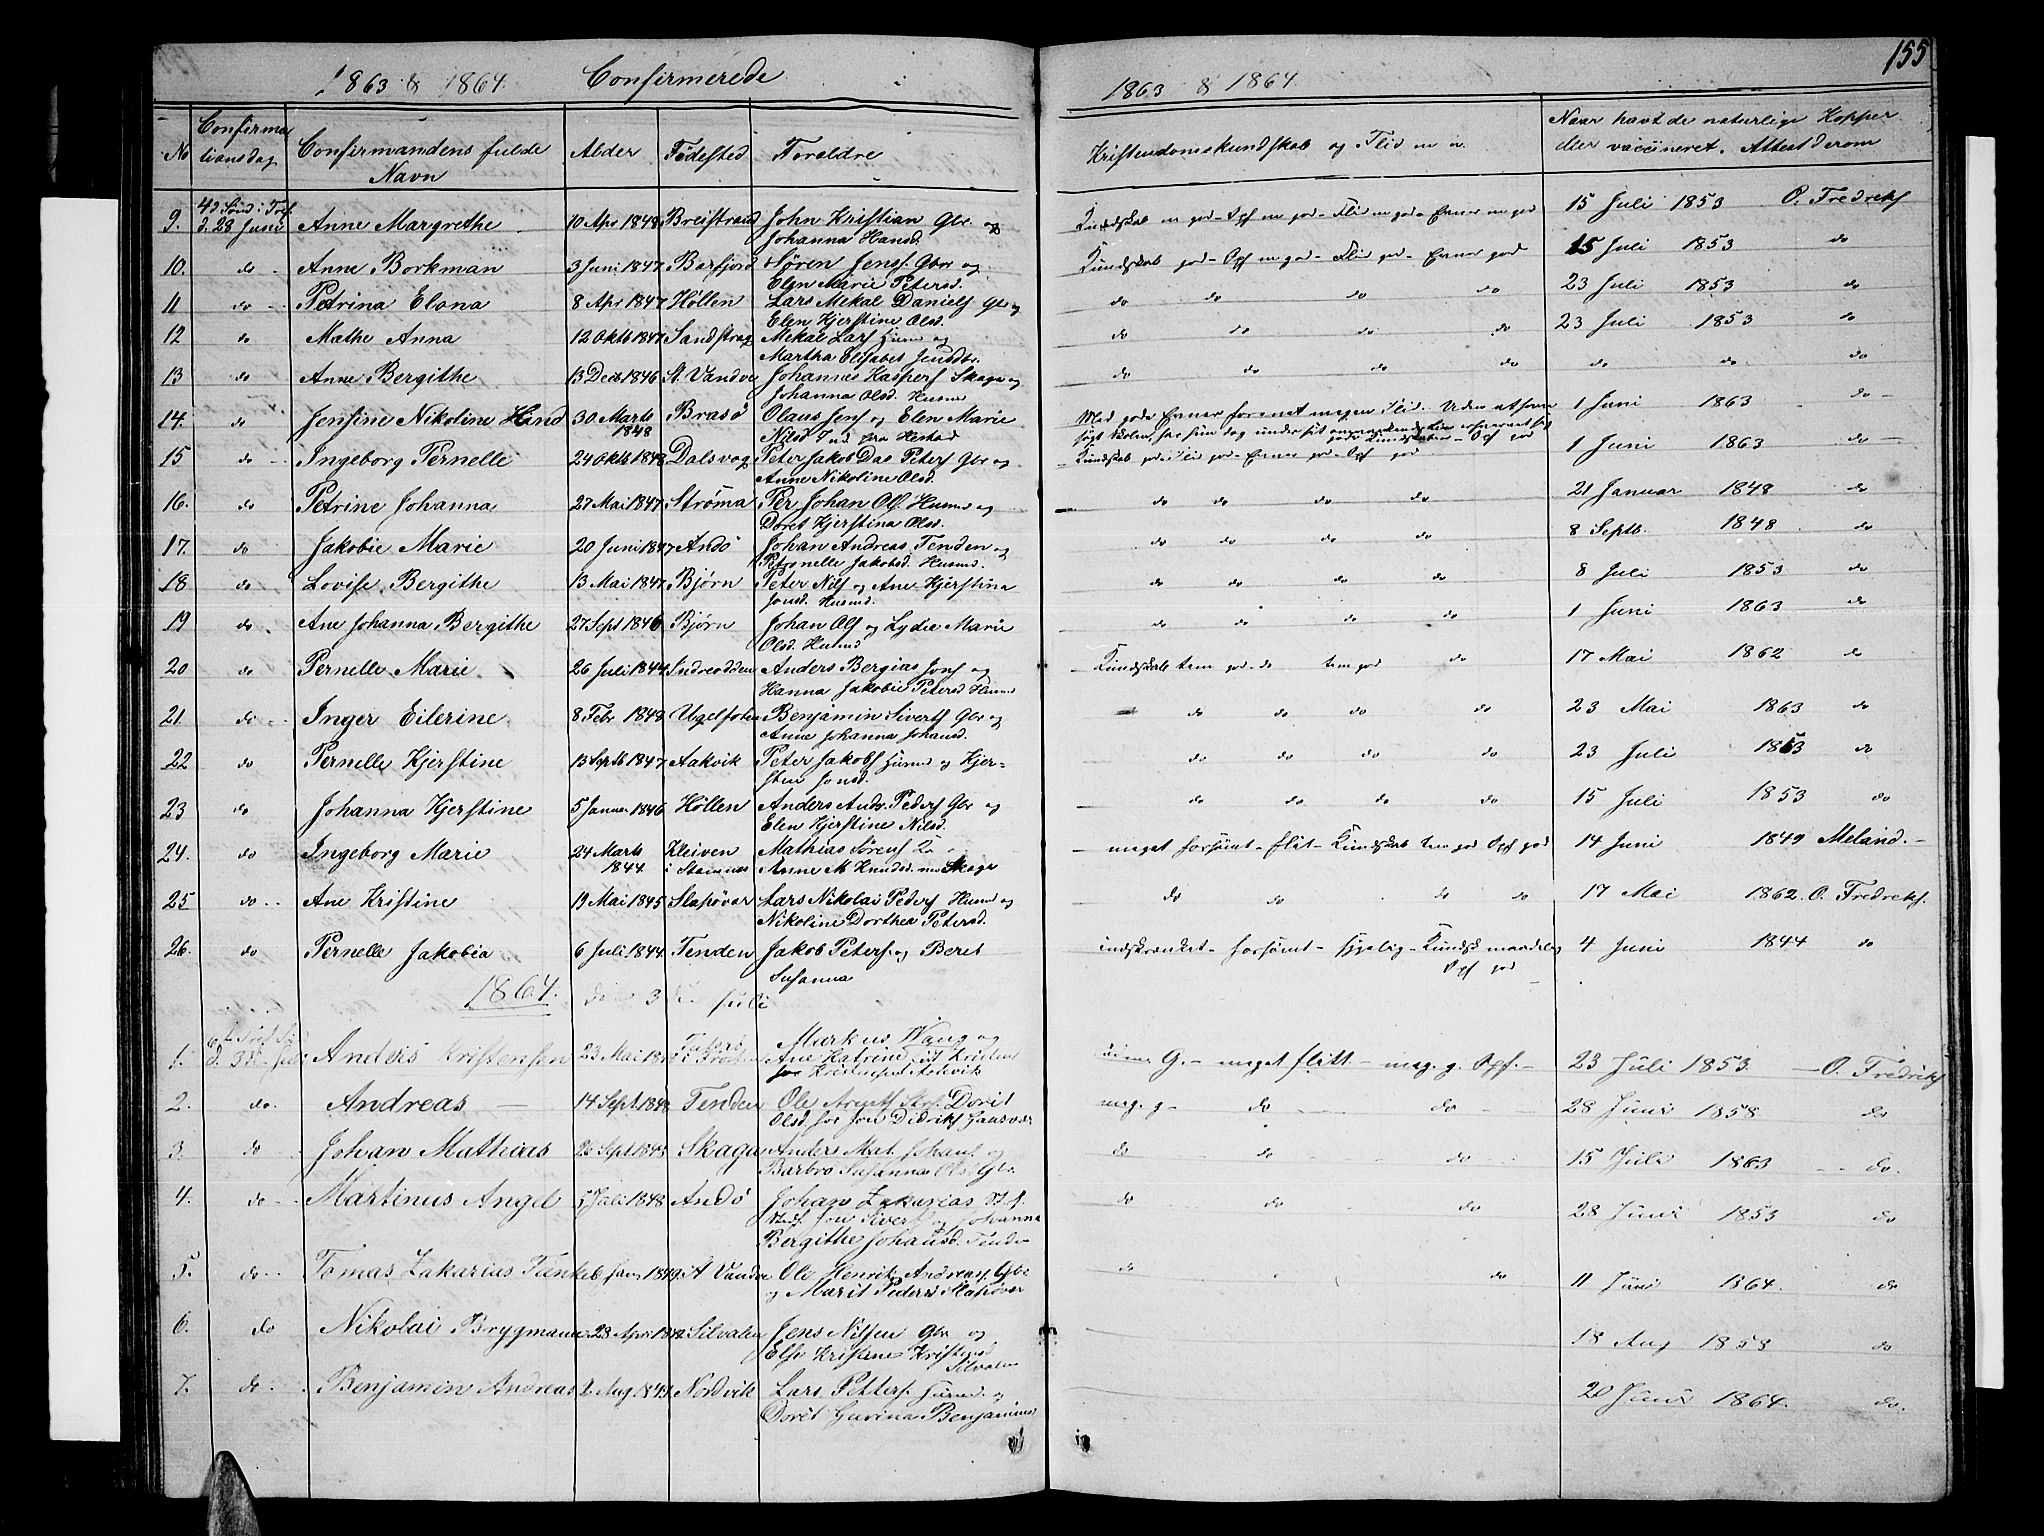 155
1863 & 1864. Confirmerede i 1863 & 1864.
No Confirmationsdag Confirmandens fulde Navn Alder Fødested Forældre Kristendomskundskab og Flid m. v. Naar havt de naturlige Kopper eller vaccineret. Attest derom
9. d. 28 Juni Anne Margrethe 10 Apr 1848 Breistrand John Kristian Gbr. og Johanna Hansd. 15 Juli 1853 O. Fredreks
10. do Anne Borkman 3 Juni 1847 Barfjord Søren Jens. Gbr og Elen Marie Petersd. Kundskab god - Opf m god - Flid god - Evner god 15 Juli 1853 do
11 do Petrina Elona 8 Apr 1847 Høllen Lars Mekal Daniels Gbr og Elen Kjerstine Olsd. do do do do 23 Juli 1853 do
12 do Mathe Anna 12 Oktb 1847 Sandstrag Mekal Lars Husm og Martha Elisabet do do do do 23 Juli 1853 do
13 do Anne Bergithe 13 Decb 1846 St. Vandve Johannes Kaspers Skaga og Johanna Olsd. Husm do do do do do do do do
14. do Jensine Nikoline Hansd 30 Marts 1848 Brasø Olaus Jens og Elen Marie Nilsd Ind. fra Hestad Med gode Evner forenet megen Flid. 1 Juni 1863 do
15 do Ingeborg Pernelle 24 Oktb 1848 Dalsvag Peter Jakob Dal Peters Gbr og Anne Nikoline Olsd. Kundskab god - Flid god - Evner god - Opf god 1 Juni 1863 do
16. do Petrine Johanna 27 Mai 1847 Strøma Per Johan Ols Husm og Doret Kjerstina Olsd. do do do do 21 Januar 1848 do
17. do Jakobie Marie 20 Juni 1847 Andø Johan Andreas Tenden og Petronelle Jakobsd. Husmd. do do do do 8 Septb. 1848 do
18 do Lovise Bergithe 13 Mai 1847 Bjørn Peter Nils og Ane Kjerstina Jonsd. Husmd. do do do do 8 Juli 1853 do
19 do Ane Johanna Bergithe 27 Sept 1846 Bjørn Johan Ols og Lydia Marie Olsd. Husmd do do do do 1 Juni 1863 do
20 do Pernelle Marie 26 Juli 1844 Indreodden Anders Bergias Jons og Hanna Jakobie Petersd Husm Kundskab tem god - do tem god do 17 Mai 1862 do
21 do Inger Eilerine 8 Febr 1848 Benjamin Siverts Gbr og Anne Johanna Johansd. do do do do 23 Mai 1863 do
22 do Pernelle Kjerstine 13 Septb 1847 Aakvik Peter Jakobs Husm og Kjersten Jonsd. do do do do 23 Juli 1853 do
23 do Johanna Kjerstine 5 Januar 1846 Høllen Anders Andr. Peders Gbr og Elen Kjerstine Nilsd. do do do do 15 Juli 1853 do
24. do Ingeborg Marie 24 Marts 1844 Kleiven i Stamnes Mathias Sørens og Anne M. Knudsd. Skaga meget forsømt - flit - Kundskab tem god Opf god 14 Juni 1849 Meland.
25 do Ane Kristine 19 Mai 1845 Slapøvar Lars Nikolai Peders Husm og Nikoline Dorthea Petersd. do do do do 17 Mai 1862. O. Fredreks.
26. do Pernelle Jakobia 6 Juli 1844 Tenden Jakob Peters. og Beret Susanna indskrænket - forsømt - sygelig - Kundsk maadelig Opf god 4 Juni 1844 do
1864. den 3de Juli
1. Anders Kristensen 23 Mai Markus Wang og Ane Katrine meget flitt - meg. g. Opf. - 23 Juli 1853. O. Fredreks
2. do. Andreas 14 Sept. 1848 Tenden Ole Dorit Olsd. for Jon Didriks Gaasvær meg. g - do do 28 Juni 1858 do
3. do Johan Mathias 26 Sept 1848 Skaga Anders Mat. Johans og Barbro Susanna Ols Gbr. do do do 15 Juli 1863 do.
4. do Martinus Angel 5 Juli 1848 Andø Johan Zakarias Jon Sivers og Johanna Bergithe Johansd. Tenden do do do 28 Juni 1853 do
5. do Tomas Zakarias Tanke 6 Jan. 1849. St Vandve Ole Henrik Andreas. Gbr og Marit Peders Slapøvar do do 11 Juni 1864. do
6. do Nikolai Brygmann 28 Apr. Silvalen Jens Nilsen Gbr og Else Kristene Kristensd Silvalen 18 Aug 1858 do
7. do Benjamin Andreas 2 Aug. 1849 Nordvik Lars Petters. Husm. og Doret Gurina Benjamins 20 Juni 1864. do.